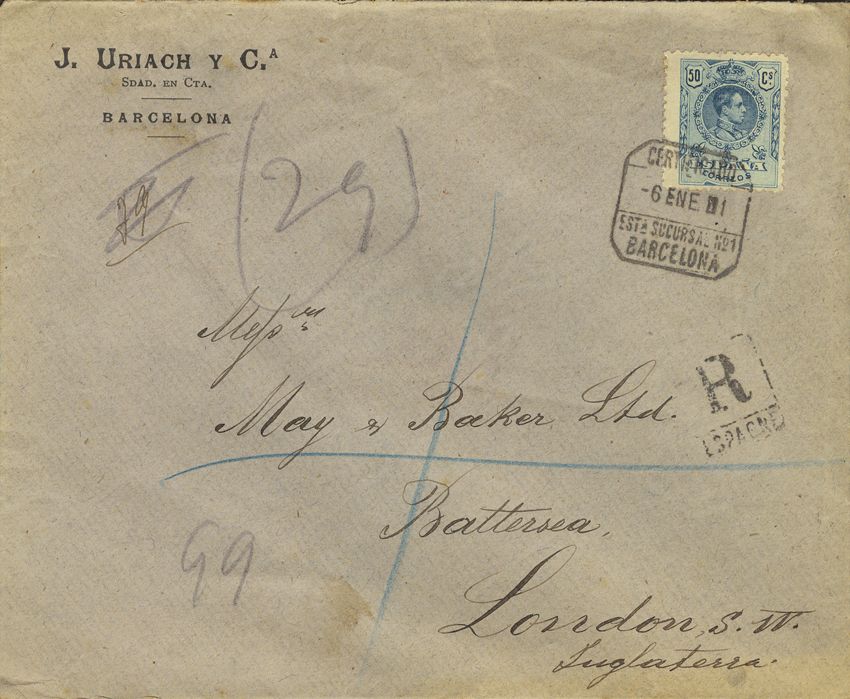 J. URIACH Y C.ᴬ
SDAD. EN CTA.
BARCELONA
50 Cˢ
CORREOS
CERTIFICADO
-6 ENE 11
ESTᴬ SUCURSAL Nº1
BARCELONA
29
(29)
R
ESPAGNE
Messʳˢ
May & Baker Ltd.
Battersea,
London, S. W.
Inglaterra.
99